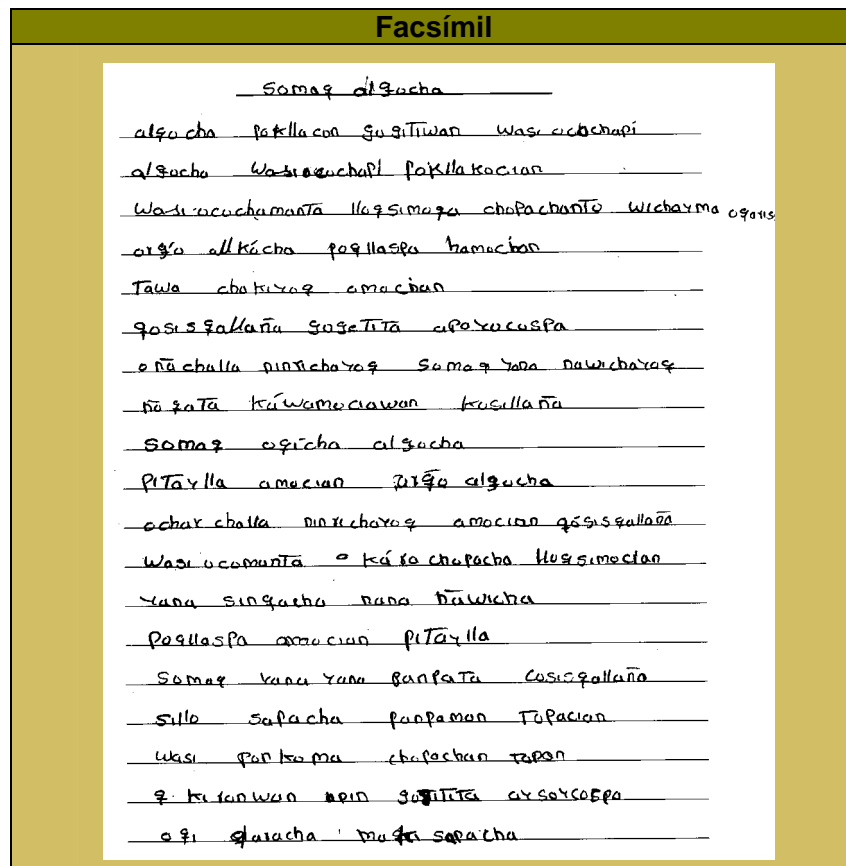 Facsímil
somaq algocha
algocha pokllacon gogitiwan wasi ucochapi
algocho wasi ocuchapi pokllakocian
wasi ocuchamanta lloqsimoga chopachanto wicharma ogaris
orgo allkócha poqllaspa hamochan
Tawa chakiyoq amochan
qosisqallaña gogetita apoyocuspa
oñachalla ninrichayoq somaq yana nawichayoq
ñoqata káwamociawan kusillaña
somaq oqicha algocha
pitaylla amocian orgo algocha
ochuychalla ninrichayoq amocian qósisqallaña
wasi ucomanta karo chopacha lloqsimocian
yana singacha nana ñawicha
poqllaspa amocian pitaylla
somaq yana yana panpata cosisqallaña
sillo sapacha panpaman topacian
wasi ponkoma chopachan topan
q kironwan apin gogitita aysorcospa
oqi qaracha sapacha